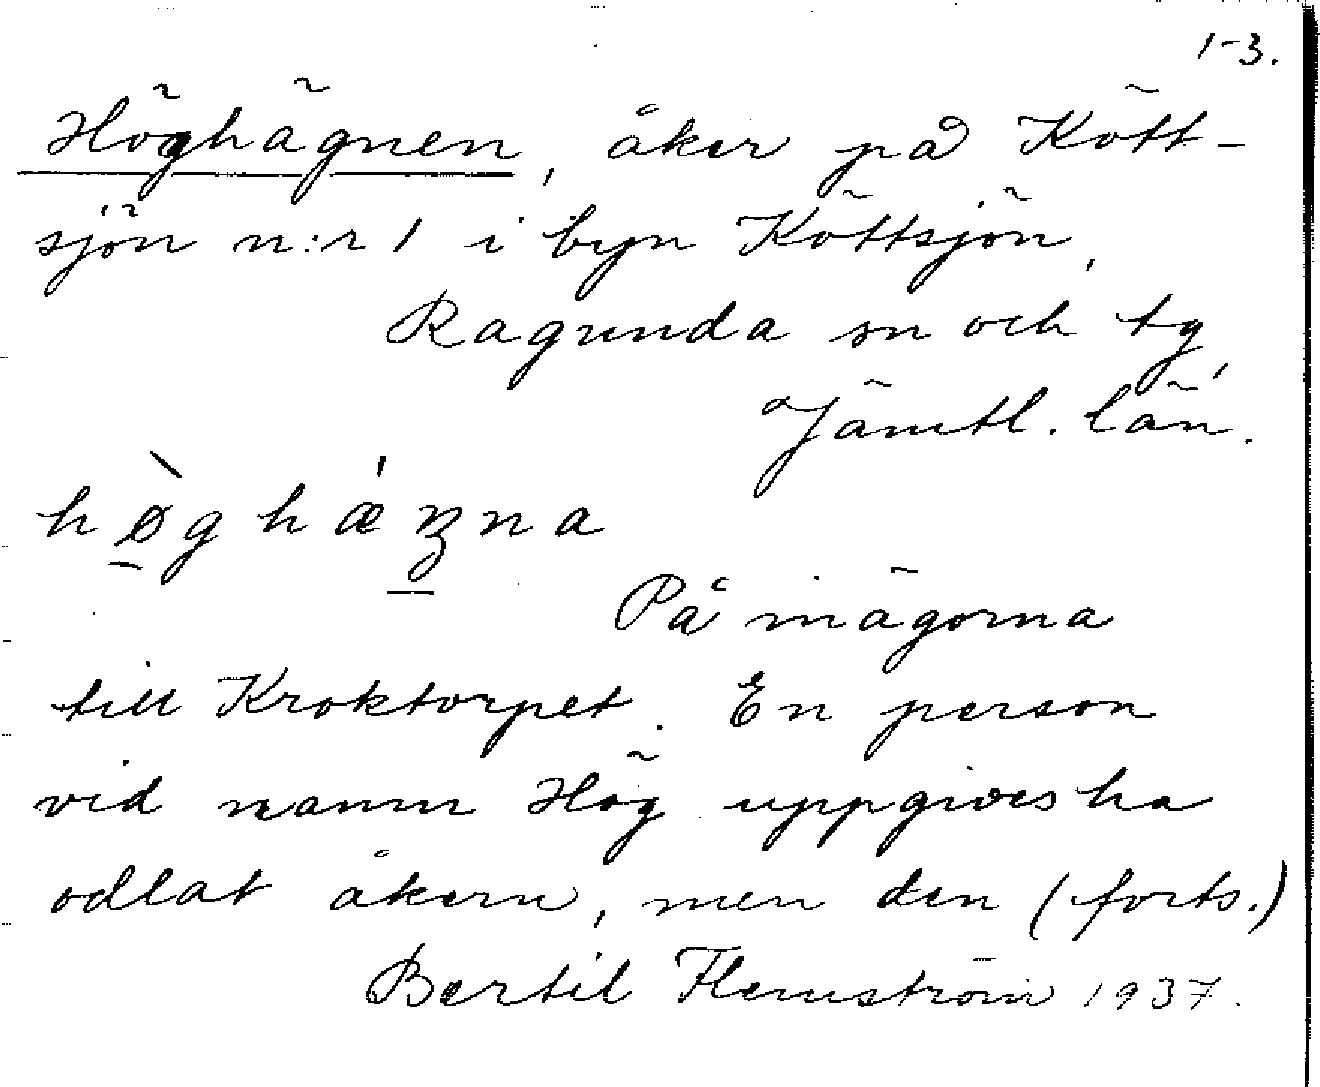 1-3.
Höghägnen, åker på Kött-
sjön n:r 1 i byn Köttsjön,
Ragunda sn och tg,
Jämtl. län.
hø̀ghǽŋna
På mägorna
till Kroktorpet. En person
vid namn Hög uppgives ha
odlat åkern, men den (forts.)
Bertil Flemström 1937.